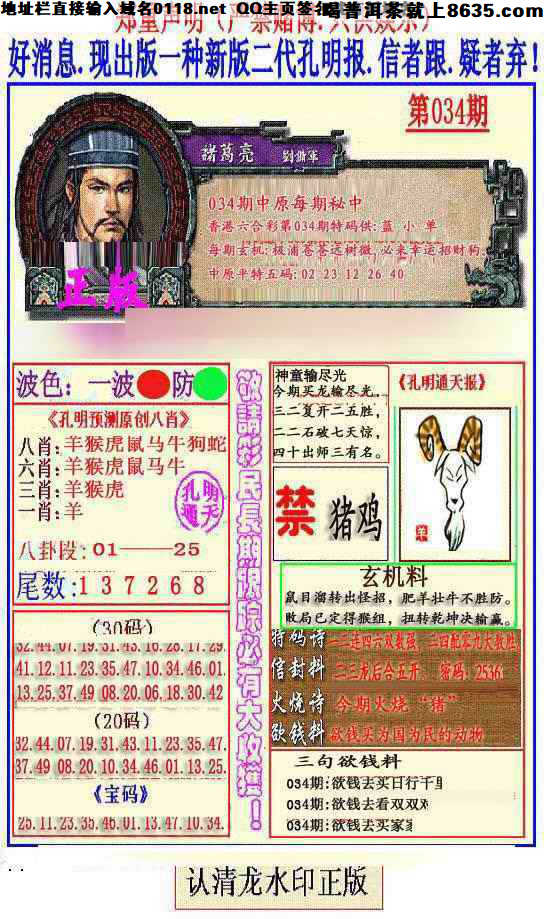 地址栏直接输入域名0118.net QQ主页签名
喝普洱茶就上8635.com
郑重声明（严禁赌博.只供娱乐）
好消息.现出版一种新版二代孔明报.信者跟.疑者弃!
第034期
諸葛亮 劉備軍
034期中原每期秘中
香港六合彩第034期特码供:蓝 小 单
每期玄机:极浦苍苍远树微,必来幸运招财狗.
中原平特五码:02 23 12 26 40
正版
波色：一波 防
《孔明预测原创八肖》
八肖:羊猴虎鼠马牛狗蛇
六肖:羊猴虎鼠马牛
三肖:羊猴虎
一肖:羊
孔明通天
八卦段:01——25
尾数:137268
(30码)
32.44.07.19.31.43.16.28.17.29.
41.12.11.23.35.47.10.34.46.01.
13.25.37.49.08.20.06.18.30.42
(20码)
32.44.07.19.31.43.11.23.35.47.
37.49.08.20.10.34.46.01.13.25.
《宝码》
25.11.23.35.46.01.13.47.10.34.
敬請彩民長期跟踪必有大收獲！
神童输尽光
今期买龙输尽光,
三二复开二五胜,
二二石破七天惊,
四十出师三有名。
《孔明通天报》
羊
禁 猪鸡
玄机料
鼠目溜转出怪招，肥羊壮牛不胜防。
败局已定得猴组，扭转乾坤决输赢。
特码诗 二三连四六双数强，二四配零九大数胜
信封料 二三龙后合五开，密码：2536.
火烧诗 今期火烧“猪”
欲钱料 欲钱买为国为民的动物
三句欲钱料
034期:欲钱去买日行千里
034期:欲钱去看双双对
034期:欲钱去买家
认清龙水印正版